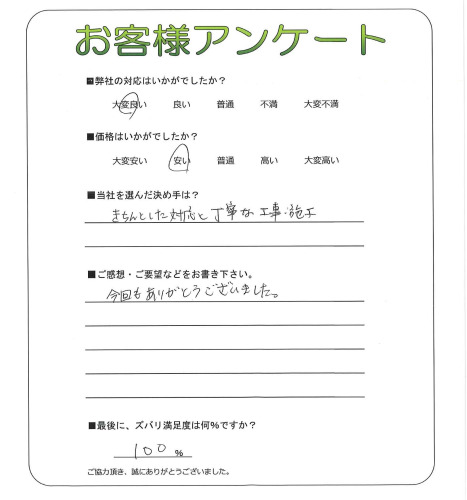 お客様アンケート
■弊社の対応はいかがでしたか？
大変良い 良い 普通 不満 大変不満
■価格はいかがでしたか？
大変安い 安い 普通 高い 大変高い
■当社を選んだ決め手は？
きちんとした対応と丁寧な工事・施工
■ご感想・ご要望などをお書き下さい。
今回もありがとうございました。
■最後に、ズバリ満足度は何％ですか？
100％
ご協力頂き、誠にありがとうございました。